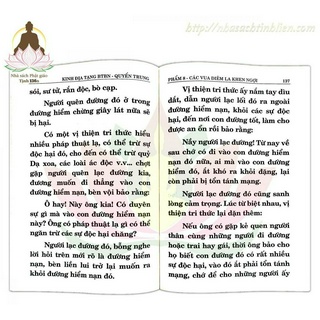 https://nhasachtinhlien.com
Nhà sách Phật giáo
Tịnh Liên
KINH ĐỊA TẠNG BTBN - QUYỂN TRUNG
sói, sư tử, rắn độc, bò cạp.
Người quên đường đó ở trong
đường hiểm chừng giây lát nữa sẽ
bị hại.
Có một vị thiện tri thức hiểu
nhiều pháp thuật lạ, có thể trừ sự
độc hại đó, cho đến có thể trừ quỷ
Dạ xoa, các loài ác độc v.v... chợt
gặp người quên lạc đường kia,
đương muốn đi thẳng vào con
đường hiểm nạn, bèn vội bảo rằng:
Ô hay! Này ông kia! Có duyên
sự gì mà vào con đường hiểm nạn
này? Ông có pháp thuật lạ gì có thể
ngăn trừ các sự độc hại chăng?
Người lạc đường đó, bỗng nghe
lời hỏi trên mới rõ là đường hiểm
nạn, bèn liền lui trở lại muốn ra
khỏi đường hiểm nạn đó.
PHẨM 8 - CÁC VUA DIÊM LA KHEN NGỢI 137
Vị thiện tri thức ấy nắm tay dìu
dắt, dẫn người lạc lối đó ra ngoài
đường hiểm, khỏi các sự độc hại,
đến nơi con đường tốt, làm cho
được an ổn rồi bảo rằng:
Nầy người lạc đường! Từ nay về
sau chớ có đi vào con đường hiểm
nạn đó nữa, ai mà vào con đường
hiểm đó, ắt khó ra khỏi đặng, lại
còn phải bị tổn tánh mạng.
Người lạc đường đó cũng sanh
lòng cảm trọng. Lúc từ biệt nhau, vị
thiện tri thức lại dặn thêm:
Nếu ông có gặp kẻ quen người
thân cùng những người đi đường
hoặc trai hay gái, thời ông bảo cho
họ biết con đường đó có rất nhiều
sự độc hại, vào đó ắt phải tổn tánh
mạng, chớ để cho những người ấy